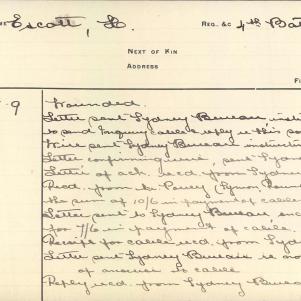 Escott, L.
REG. &C 4th Bat
NEXT OF KIN
ADDRESS
9
Wounded.
Letter sent Sydney Bureau, inst
to send enquiry cable & reply re this so
Wire sent Sydney Bureau instruct
Letter confirming wire, sent Sydn
Letter of ack. recd from Sydn
Recd. from
the sum of 10/6 in payment of cable
Letter sent to Sydney Bureau, enc
for 7/6 in payment of cable.
Receipt for cable recd. from Syd
Letter sent Sydney Bureau re non
of answer to cable
Reply recd. from Sydney Burea